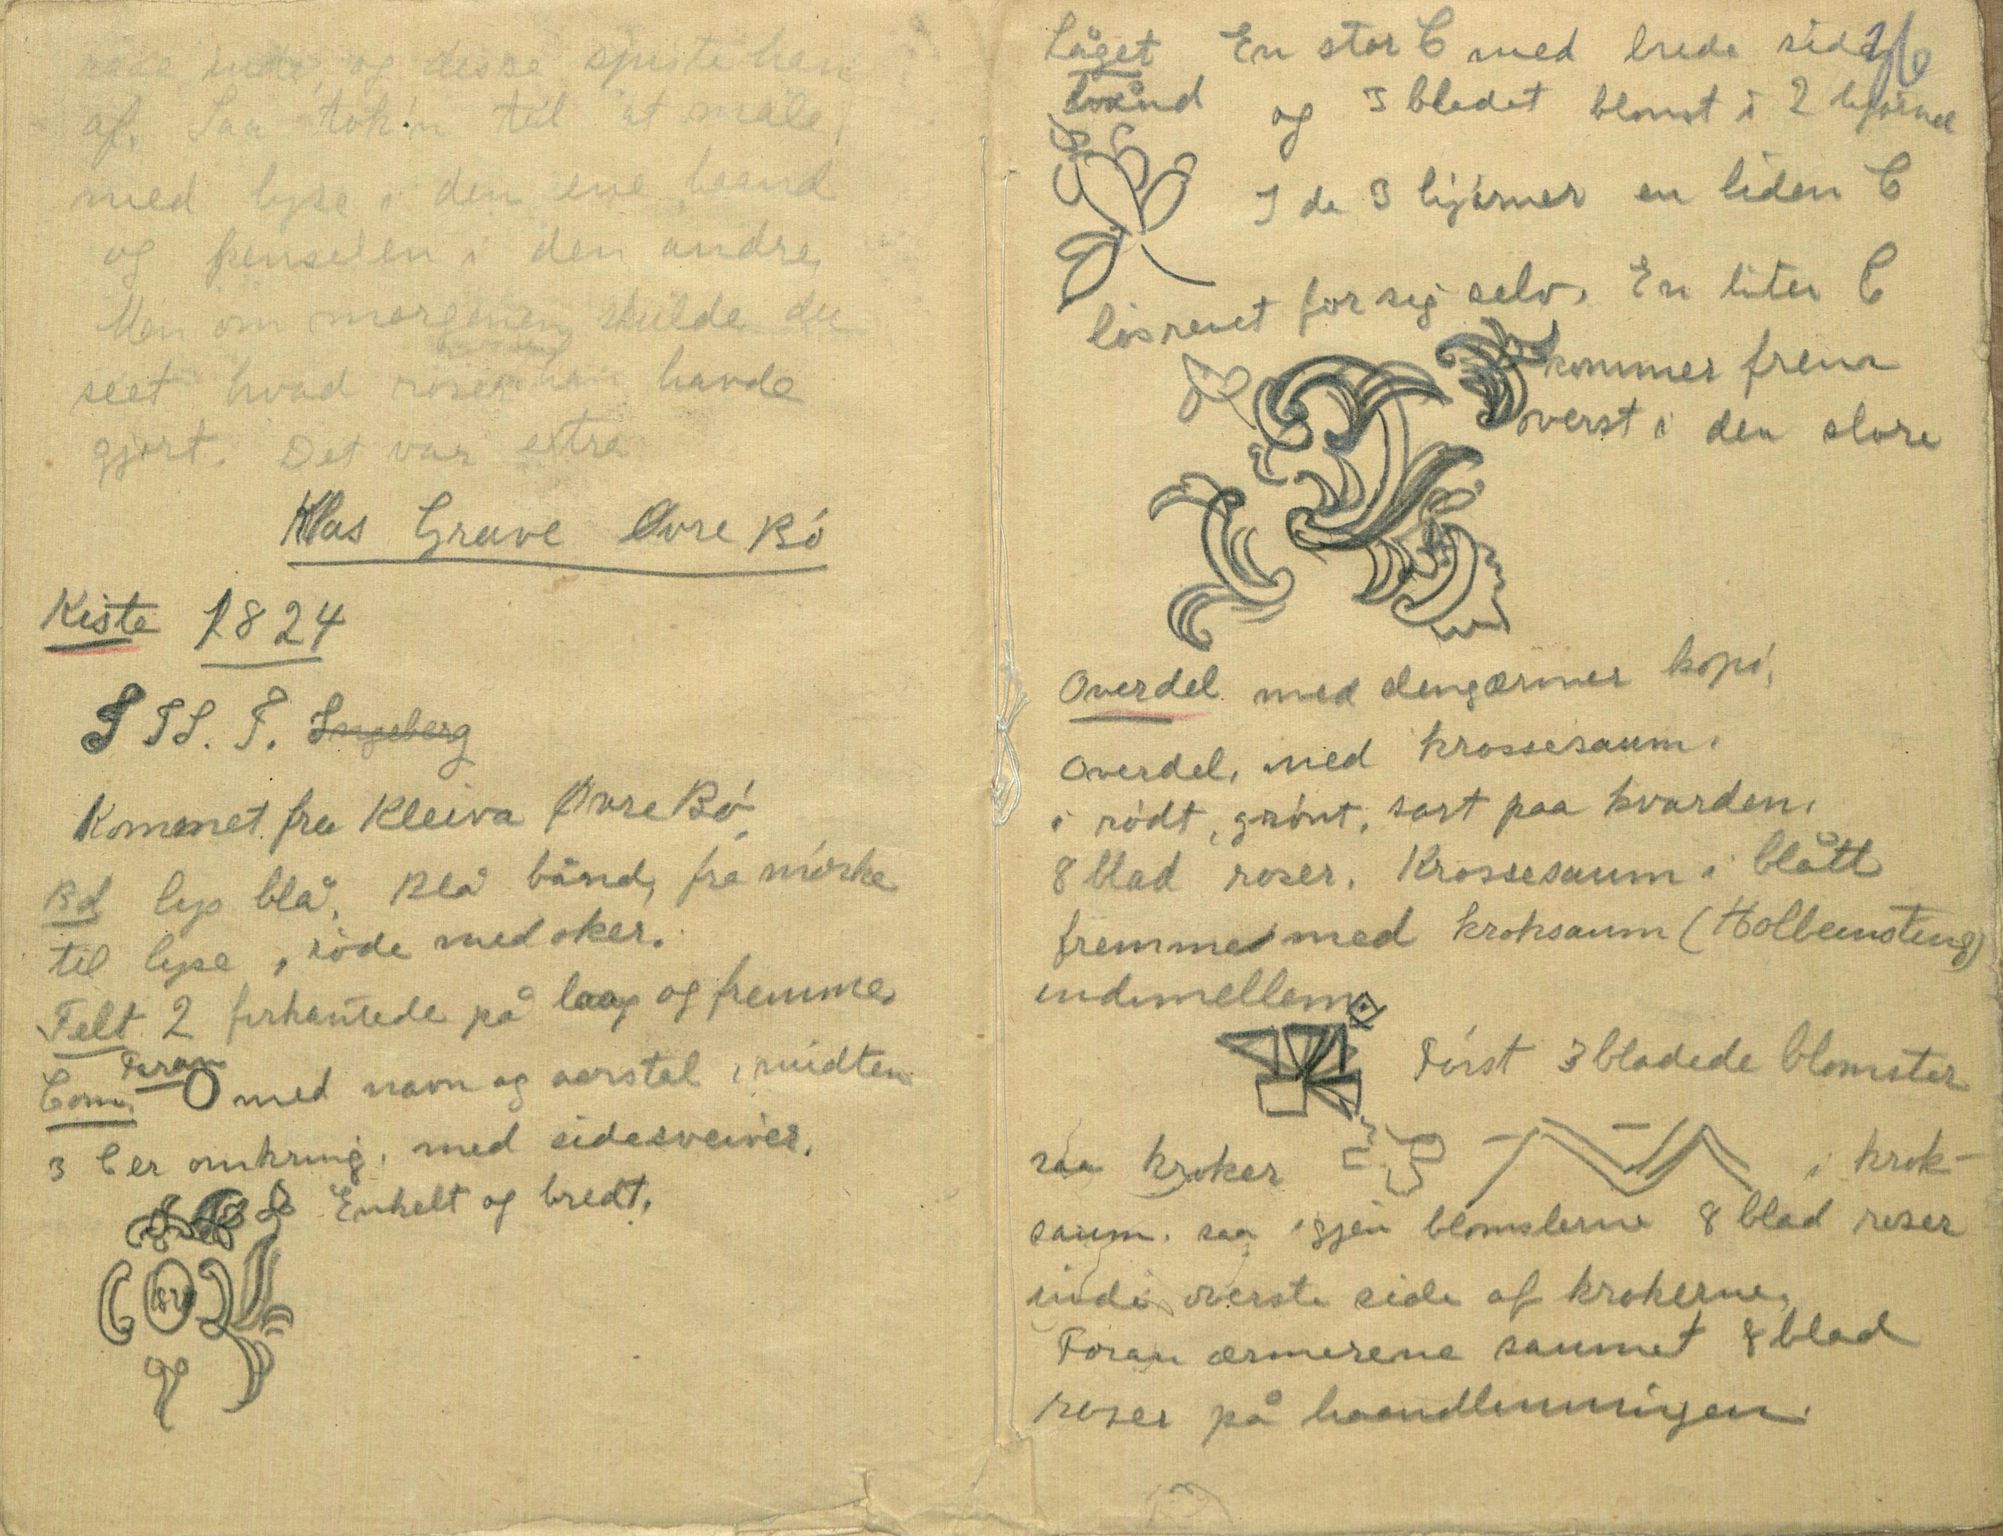 inde, og desse spiste han
af. Saa tok'n til at male,
med lyse i den ene haand
og penselen i den andre,
Men om morgenen skulde du
seet hvad roser han havde
gjort. Det var extra
Klas Grave Øvre Bó
Kiste 1824
S T S. F. Ingeberg
Kommet fra Kleiva Øvre Bó,
Bd lys blå. Blå bånd, fra mórke
til lyse, róde med oker.
Felt 2 firkantede på laag og fremme,
Foran
Com. O med navn og aarstal i midten
3 C er omkring, med sidesveiver.
Enkelt og bredt.
1824
26
Låget En stor C med brede side
bånd og 3 bladet blomst i 2 hjórner
I de 3 hjórner en liden C
lósrevet for sig selv. En liten C
kommer frem
överst i den store
Overdel med slengærmer kopi,
Overdel, med krossesaum.
i ródt, grónt, sort paa kvarden.
8 blad roser. Krossesaum i blått
fremme med kroksaum (Holbeinsting)
indimellem.
Fórst 3 bladede blomster
saa kroker i krok-
saum. saa igjen blomsterne 8 blad roser
indi överste side af krokerne.
Foran ærmerene saumet 8 blad
roser på haandlinningen.